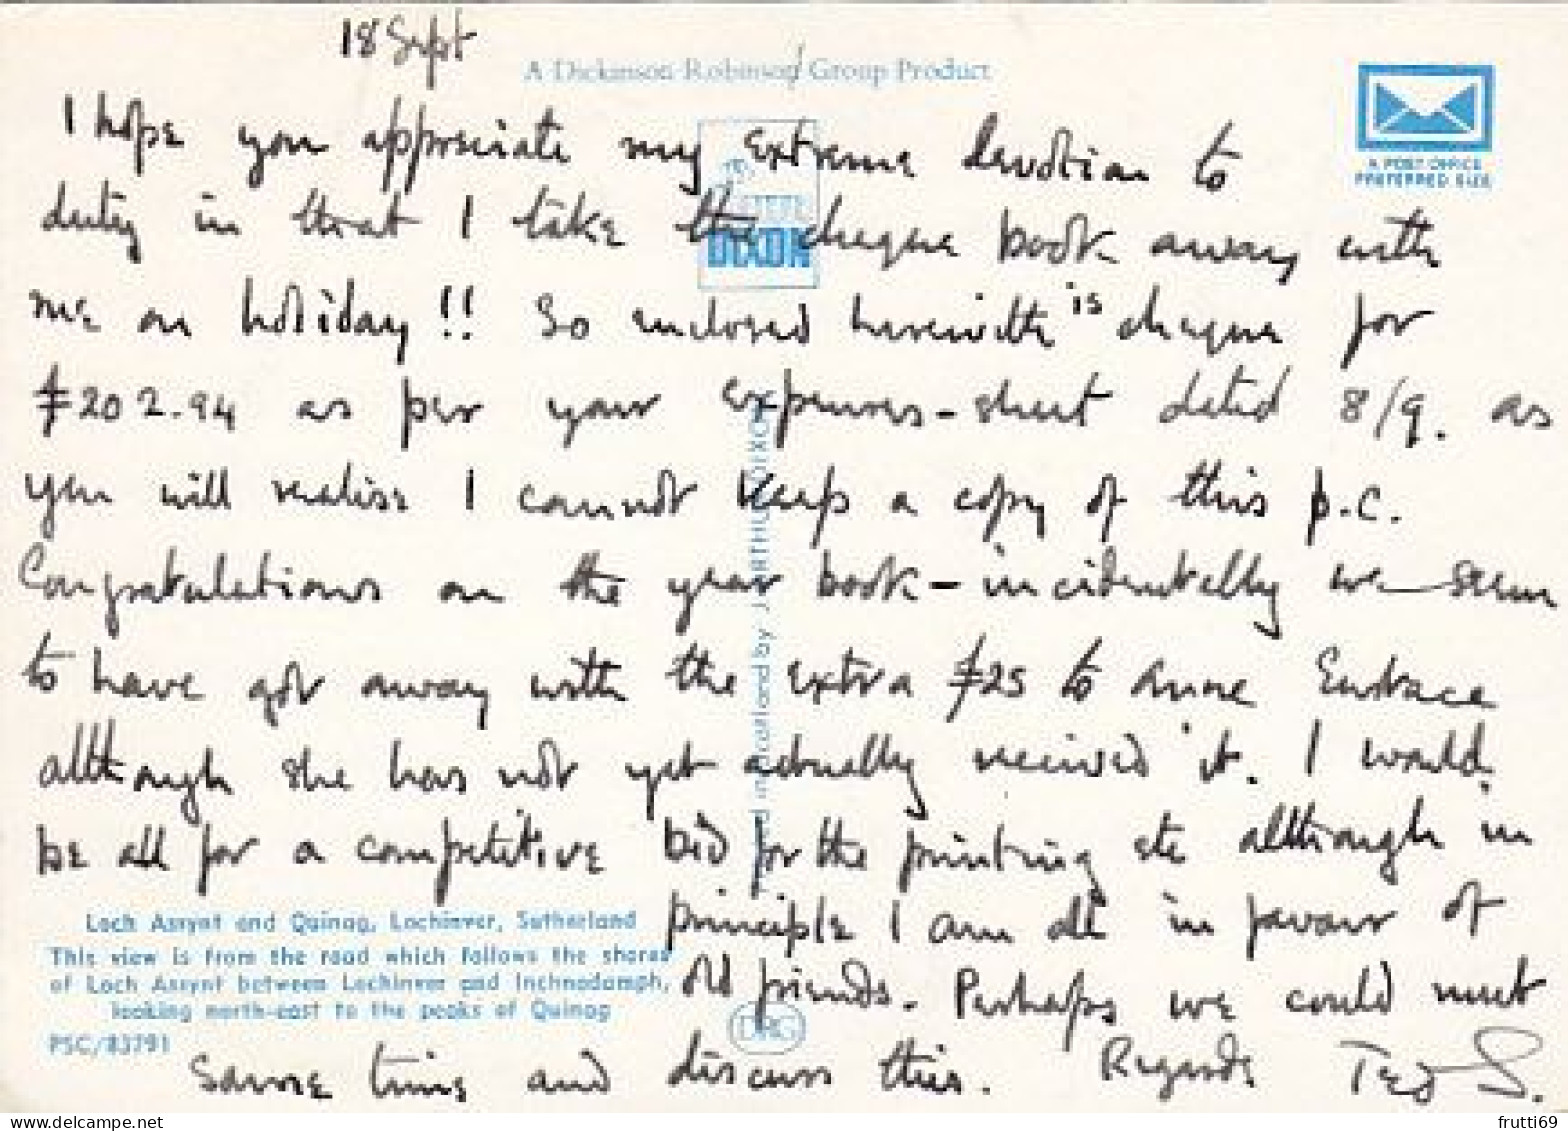 18 Sept
A Dickinson Robinson Group Product
A POST OFFICE
PREFERRED SIZE
I hope you appreciate my extreme devotion to
duty in that I take the cheque book away with
DIXON
me on holiday!! So enclosed herewith is cheque for
£202.94 as per your expenses-sheet dated 8/9. as
you will realise I cannot keep a copy of this p.c.
Congratulations on the year book - incidentally we seem
to have got away with the extra £25 to Anne Eustace
although she has not yet actually received it. I would
be all for a competitive bid for the printing etc although in
principle I am all in favour of
old friends. Perhaps we could meet
some time and discuss this. Regards Ted S.
Loch Assynt and Quinag, Lochinver, Sutherland
This view is from the road which follows the shores
of Loch Assynt between Lochinver and Inchnadamph,
looking north-east to the peaks of Quinag
PSC/83791
DRG
in Scotland by J. ARTHUR DIXON
frutti69